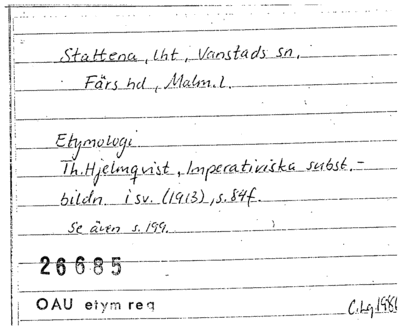 Stattena, lht, Vanstads sn,
Färs hd, Malm. l.
Etymologi
Th. Hjelmqvist, Imperativiska subst.-
bildn. i sv. (1913), s. 84f.
Se även s. 199.
26685
OAU etym reg
C. Lg 1986